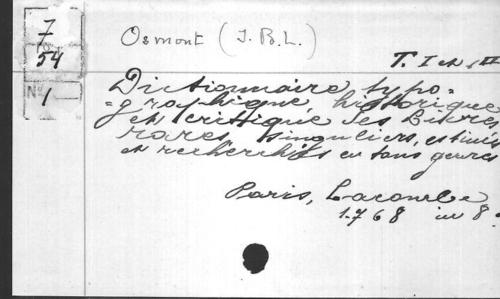 7
54
No
1
Osmont (J. B. L.)
T. I et II
Dictionnaire typo=
=graphique, historique
et critique des Livres
rares, singuliers, estimés
et recherchés en tous genres
Paris, Lacombe
1768 in 8o